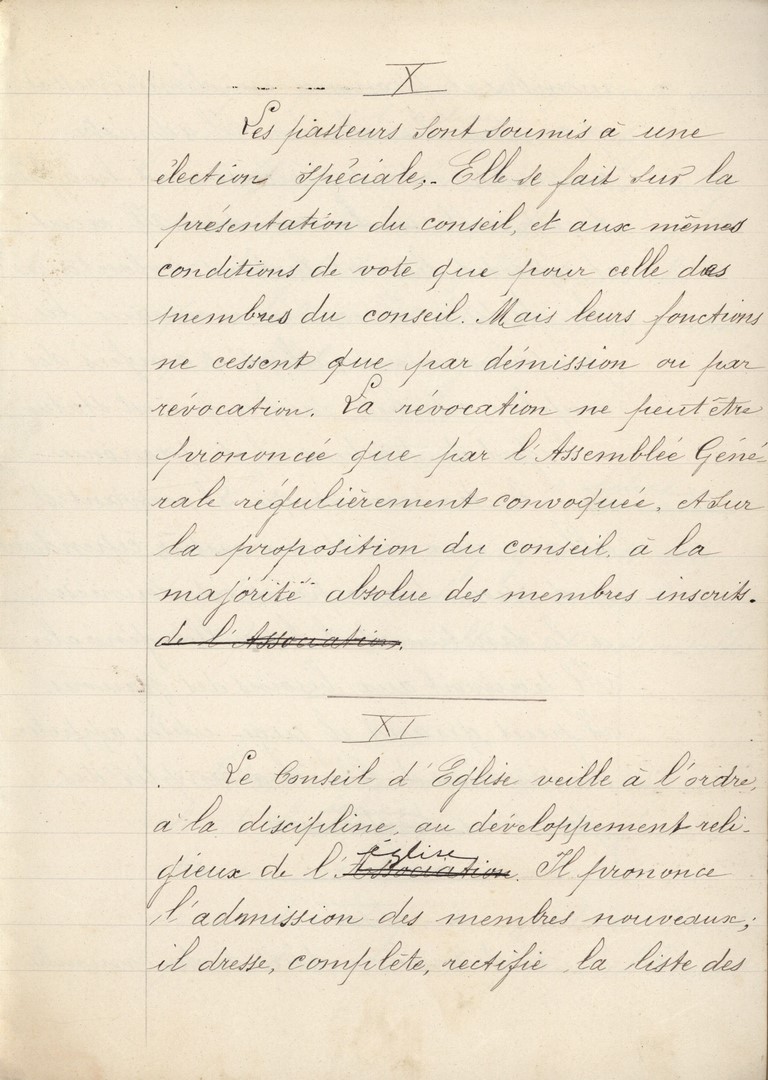 X
Les pasteurs sont soumis à une
élection spéciale,. Elle se fait sur la
présentation du conseil, et aux mêmes
conditions de vote que pour celle des
membres du conseil. Mais leurs fonctions
ne cessent que par démission ou par
révocation. La révocation ne peut être
prononcée que par l'Assemblée Géné-
rale régulièrement convoquée, et sur
la proposition du conseil, à la
majorité absolue des membres inscrits.
de l'Association.
XI
Le Conseil d'Eglise veille à l'ordre,
à la discipline, au développement reli-
église
gieux de l'Association. Il prononce
l'admission des membres nouveaux;
il dresse, complète, rectifie la liste des